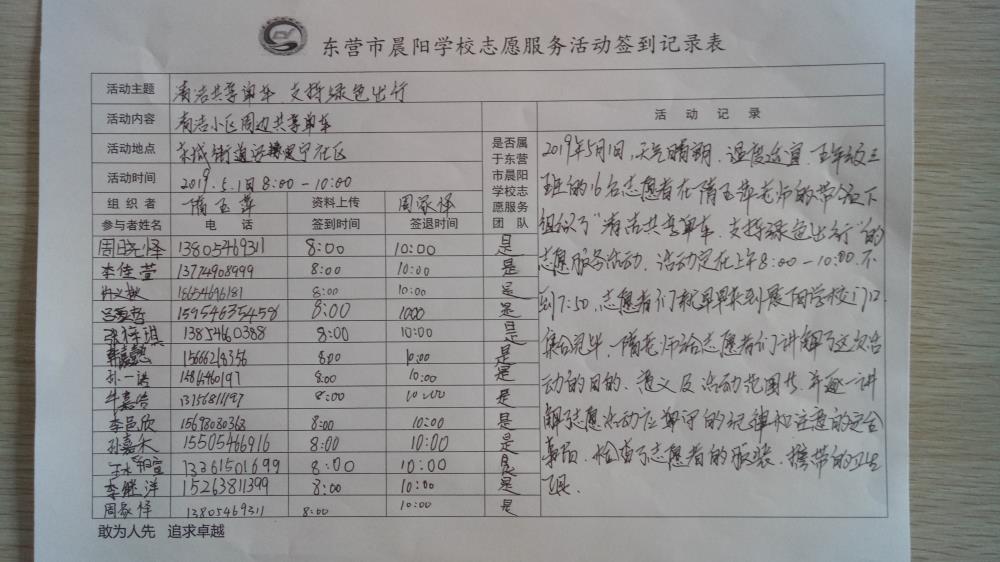 东营市晨阳学校志愿服务活动签到记录表
活动主题 清洁共享单车、支持绿色出行
活动内容 清洁小区周边共享单车
活动地点 东城街道 社区
活动时间 2019.5.1日8:00-10:00
组织者 隋玉萍 资料上传 周家怿
参与者姓名 电话 签到时间 签退时间 是否属于东营市晨阳学校志愿服务团队
周晓怿 13805469311 8:00 10:00 是
李佳萱 13774908999 8:00 10:00 是
15654696181 8:00 10:00 是
吕 哲 15954635458 8:00 1000 是
张梓琪 13854660388 8:00 10:00 是
8:00 10:00 是
孙一诺 8:00 10:00 是
牛嘉浩 13156811197 8:00 10:00 是
李邑欣 8:00 10:00 是
孙嘉禾 15505466916 8:00 10:00 是
13361501699 8:00 10:00 是
李继洋 15263811399 8:00 10:00 是
周家怿 13805469311 8:00 10:00 是
活动记录
2019年5月1日,天气晴朗、温度适宜,五年级三
班的16名志愿者在隋玉萍老师的带领下
组织了“清洁共享单车、支持绿色出行”的
志愿服务活动。活动定在上午8:00-10:00.不
到7:50,志愿者们就早早来到晨阳学校门口
集合完毕。隋老师给志愿者们讲解了这次活
动的目的、意义及活动范围 ,并逐一讲
解了志愿活动应遵守的纪律和注意的安全
事项,检查了志愿者的服装、携带的卫生
工具.
敢为人先 追求卓越